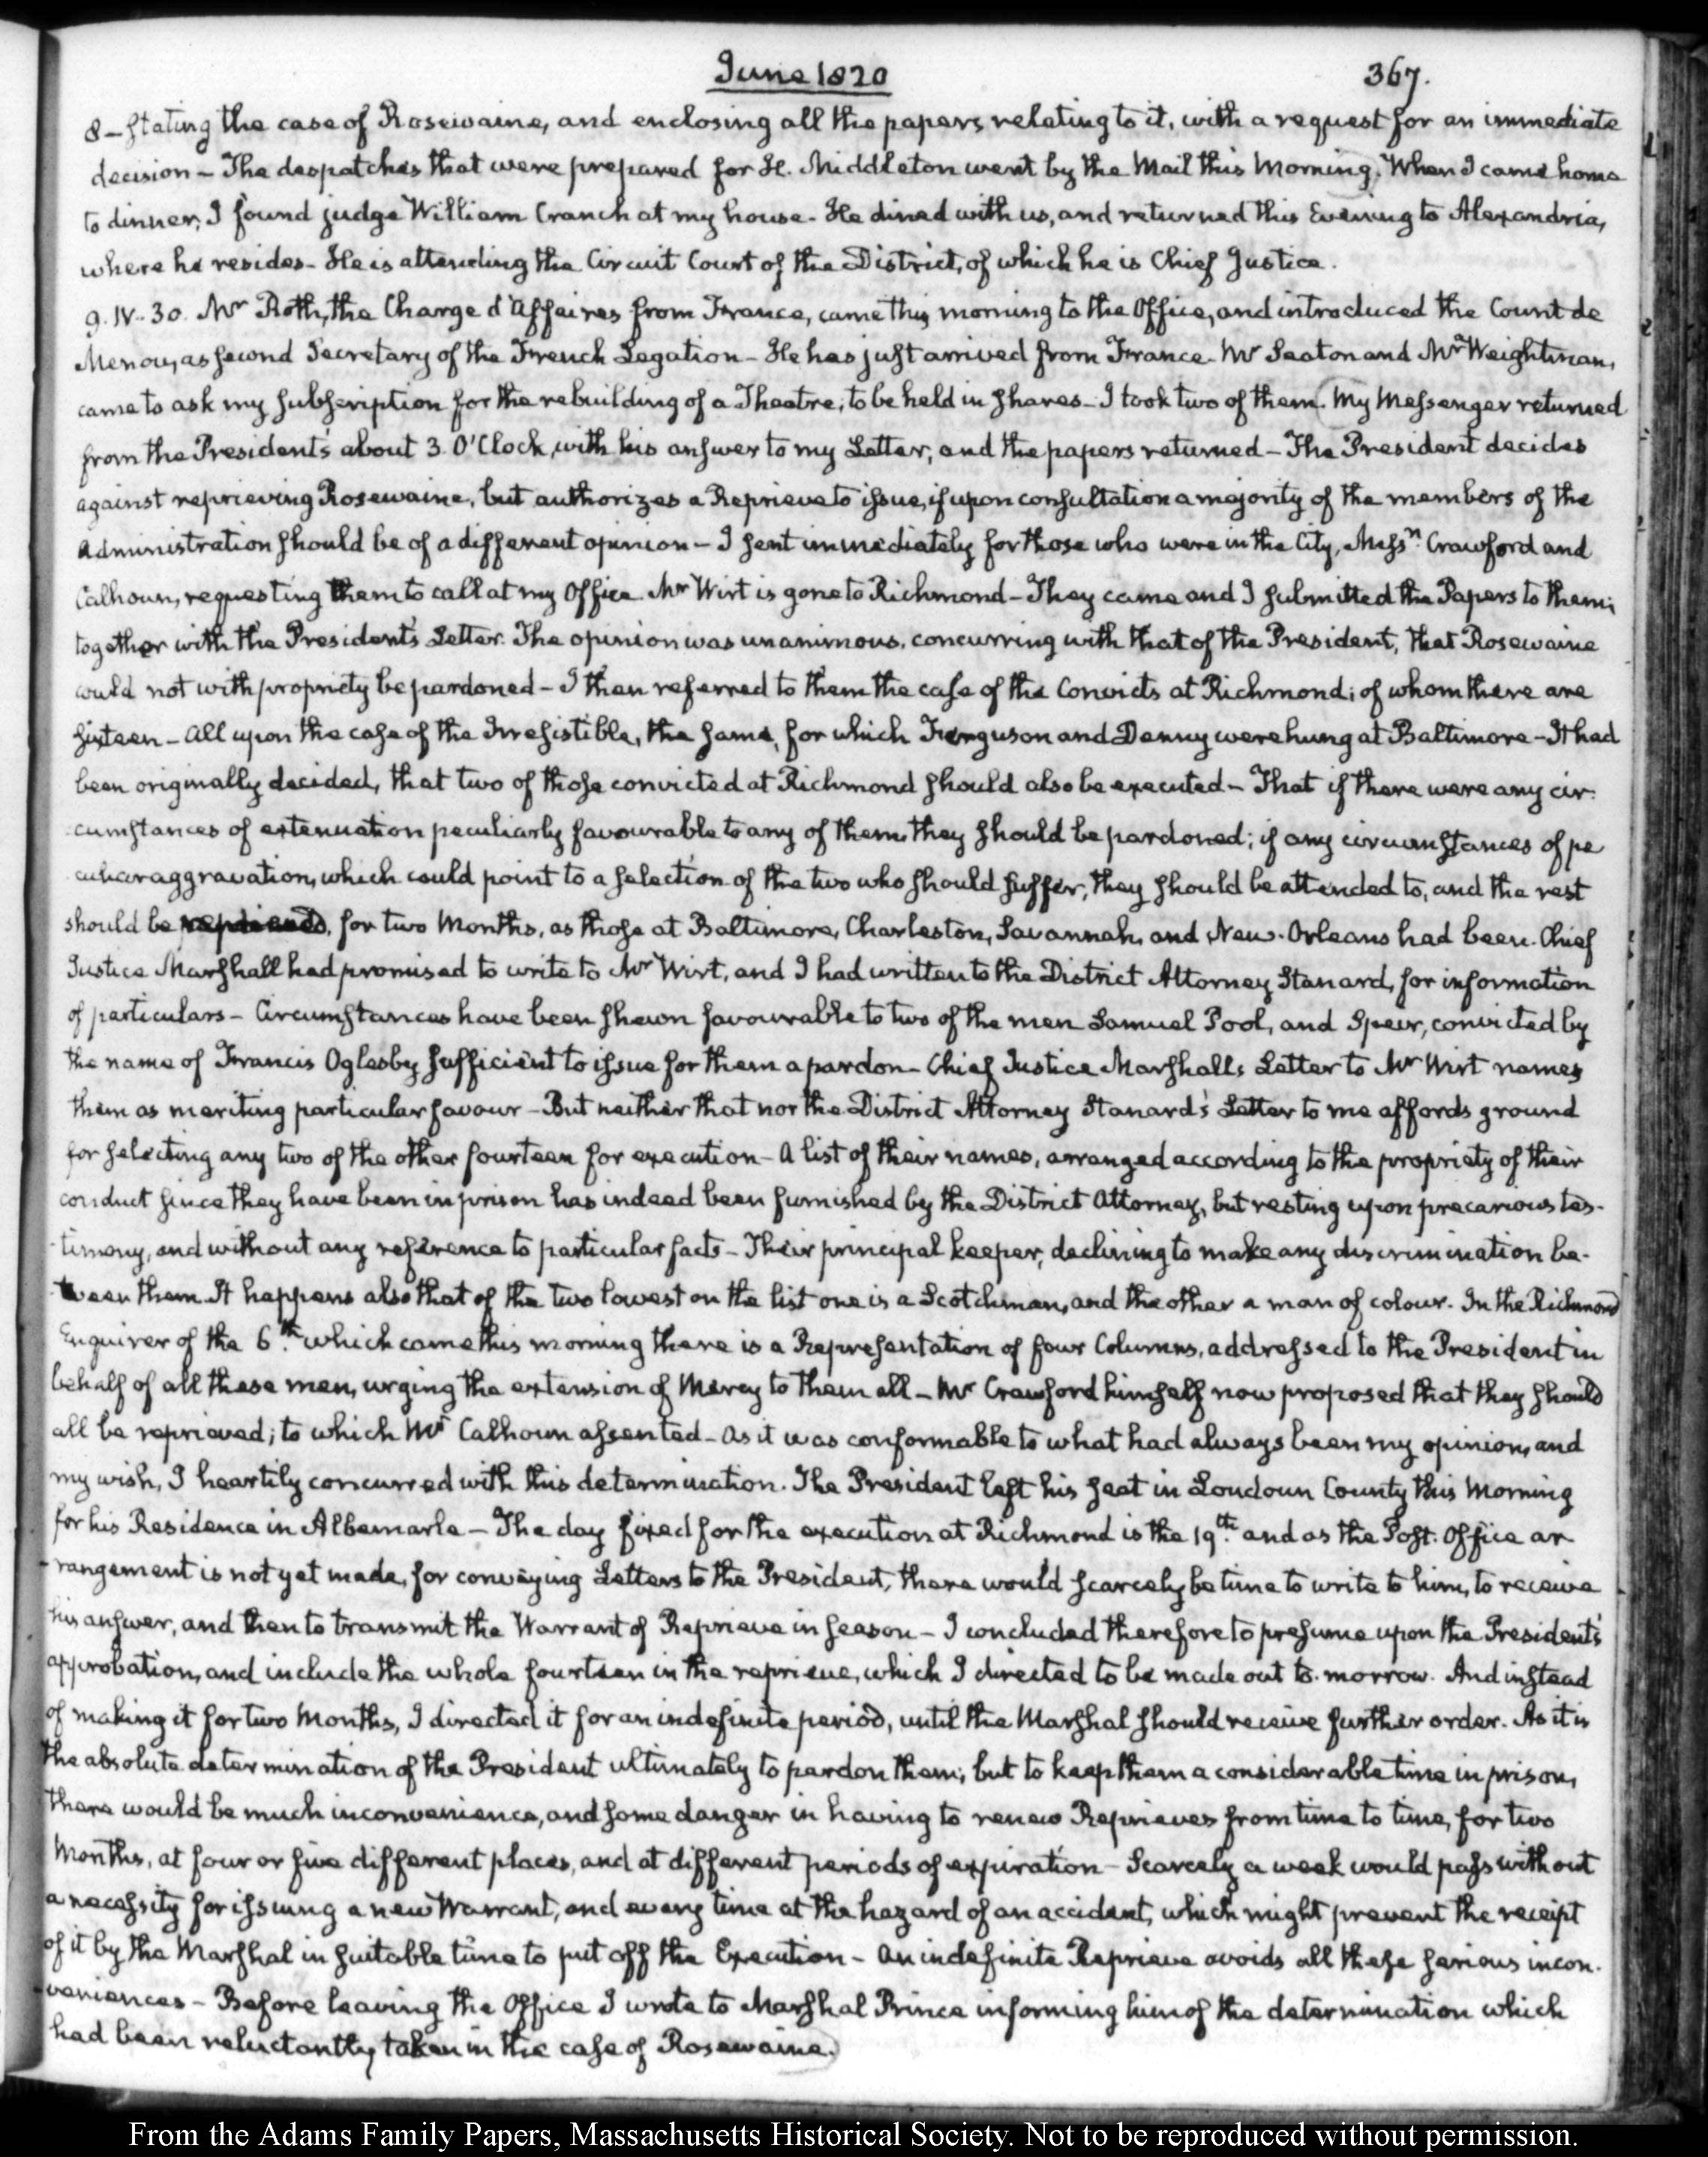 June 1820
367.
8 - stating the case of Rosewaine, and enclosing all the papers relating to it, with a request for an immediate
decision - The despatches that were prepared for H. Middleton went by the Mail this Morning. When I came home
to dinner, I found judge William Cranch at my house - He dined with us, and returned this Evening to Alexandria,
where he resides - He is attending the Circuit Court of the District, of which he is Chief Justice.
9. IV. 30. Mr Roth, the Charge d'Affaires from France, came this morning to the Office, and introduced the Count de
Menou, as second Secretary of the French Legation - He has just arrived from France - Mr Seaton and Mr Weightman,
came to ask my subscription for the rebuilding of a Theatre, to be held in shares - I took two of them. My Messenger returned
from the President's about 3 O'Clock, with his answer to my Letter, and the papers returned - The President decides
against reprieving Rosewaine, but authorizes a Reprieve to issue, if upon consultation a majority of the members of the
Administration should be of a different opinion - I sent immediately for those who were in the City, Messrs Crawford and
Calhoun, requesting them to call at my Office. Mr Wirt is gone to Richmond - They came and I submitted the Papers to them;
together with the President's Letter. The opinion was unanimous, concurring with that of the President, that Rosewaine
could not with propriety be pardoned - I then referred to them the case of the Convicts at Richmond; of whom there are
sixteen - All upon the case of the Irresistible, the same, for which Ferguson and Denny were hung at Baltimore - It had
been originally decided, that two of those convicted at Richmond should also be executed - That if there were any cir-
cumstances of extenuation peculiarly favourable to any of them, they should be pardoned; if any circumstances of pe
culiar aggravation, which could point to a selection of the two who should suffer, they should be attended to, and the rest
should be reprieved, for two Months, as those at Baltimore, Charleston, Savannah, and New-Orleans had been. Chief
Justice Marshall had promised to write to Mr Wirt, and I had written to the District Attorney Stanard, for information
of particulars - Circumstances have been shewn favourable to two of the men Samuel Pool, and Speir, convicted by
the name of Francis Oglesby sufficient to issue for them a pardon - Chief Justice Marshall's Letter to Mr Wirt names
them as meriting particular favour - But neither that nor the District Attorney Stanard's Letter to me affords ground
for selecting any two of the other fourteen for execution - A list of their names, arranged according to the propriety of their
conduct since they have been in prison has indeed been furnished by the District Attorney, but resting upon precarious tes-
timony, and without any reference to particular facts - Their principal keeper, declining to make any discrimination be-
tween them. It happens also that of the two lowest on the list one is a Scotchman, and the other a man of colour. In the Richmond
Enquirer of the 6th which came this morning there is a Representation of four Columns, addressed to the President in
behalf of all these men, urging the extension of Mercy to them all - Mr Crawford himself now proposed that they should
all be reprieved; to which Mr Calhoun assented - As it was conformable to what had always been my opinion, and
my wish, I heartily concurred with this determination. The President left his seat in Loudoun County this Morning
for his Residence in Albemarle - The day fixed for the execution at Richmond is the 19th and as the Post-Office ar
rangement is not yet made, for conveying Letters to the President, there would scarcely be time to write to him, to receive
his answer, and then to transmit the Warrant of Reprieve in season - I concluded therefore to presume upon the President's
approbation, and include the whole fourteen in the reprieve, which I directed to be made out to-morrow. And instead
of making it for two Months, I directed it for an indefinite period, until the Marshal should receive further order. As it is
the absolute determination of the President ultimately to pardon them; but to keep them a considerable time in prison,
there would be much inconvenience, and some danger in having to renew Reprieves from time to time, for two
Months, at four or five different places, and at different periods of expiration - Scarcely a week would pass without
a necessity for issuing a new Warrant, and every time at the hazard of an accident, which might prevent the receipt
of it by the Marshal in suitable time to put off the Execution - An indefinite Reprieve avoids all these serious incon-
veniences - Before leaving the Office I wrote to Marshal Prince informing him of the determination which
had been reluctantly taken in the case of Rosewaine.
From the Adams Family Papers, Massachusetts Historical Society. Not to be reproduced without permission.